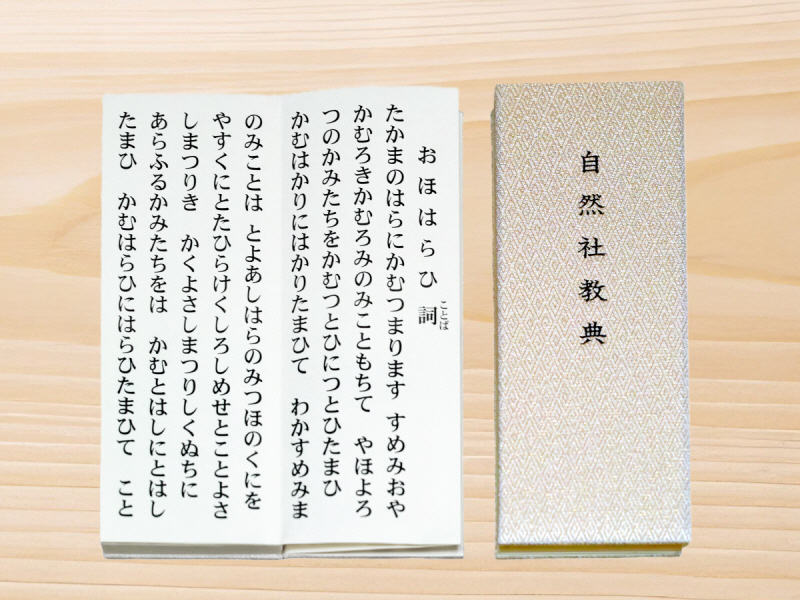 おほはらひ詞
ことば
たかまのはらにかむつまります すめみおや
かむろきかむろみのみこともちて やほよろ
つのかみたちをかむつとひにつとひたまひ
かむはかりにはかりたまひて わかすめみま
のみことは とよあしはらのみつほのくにを
やすくにとたひらけくしろしめせとことよさ
しまつりき かくよさしまつりしくぬちに
あらふるかみたちをは かむとはしにとはし
たまひ かむはらひにはらひたまひて こと
自然社教典